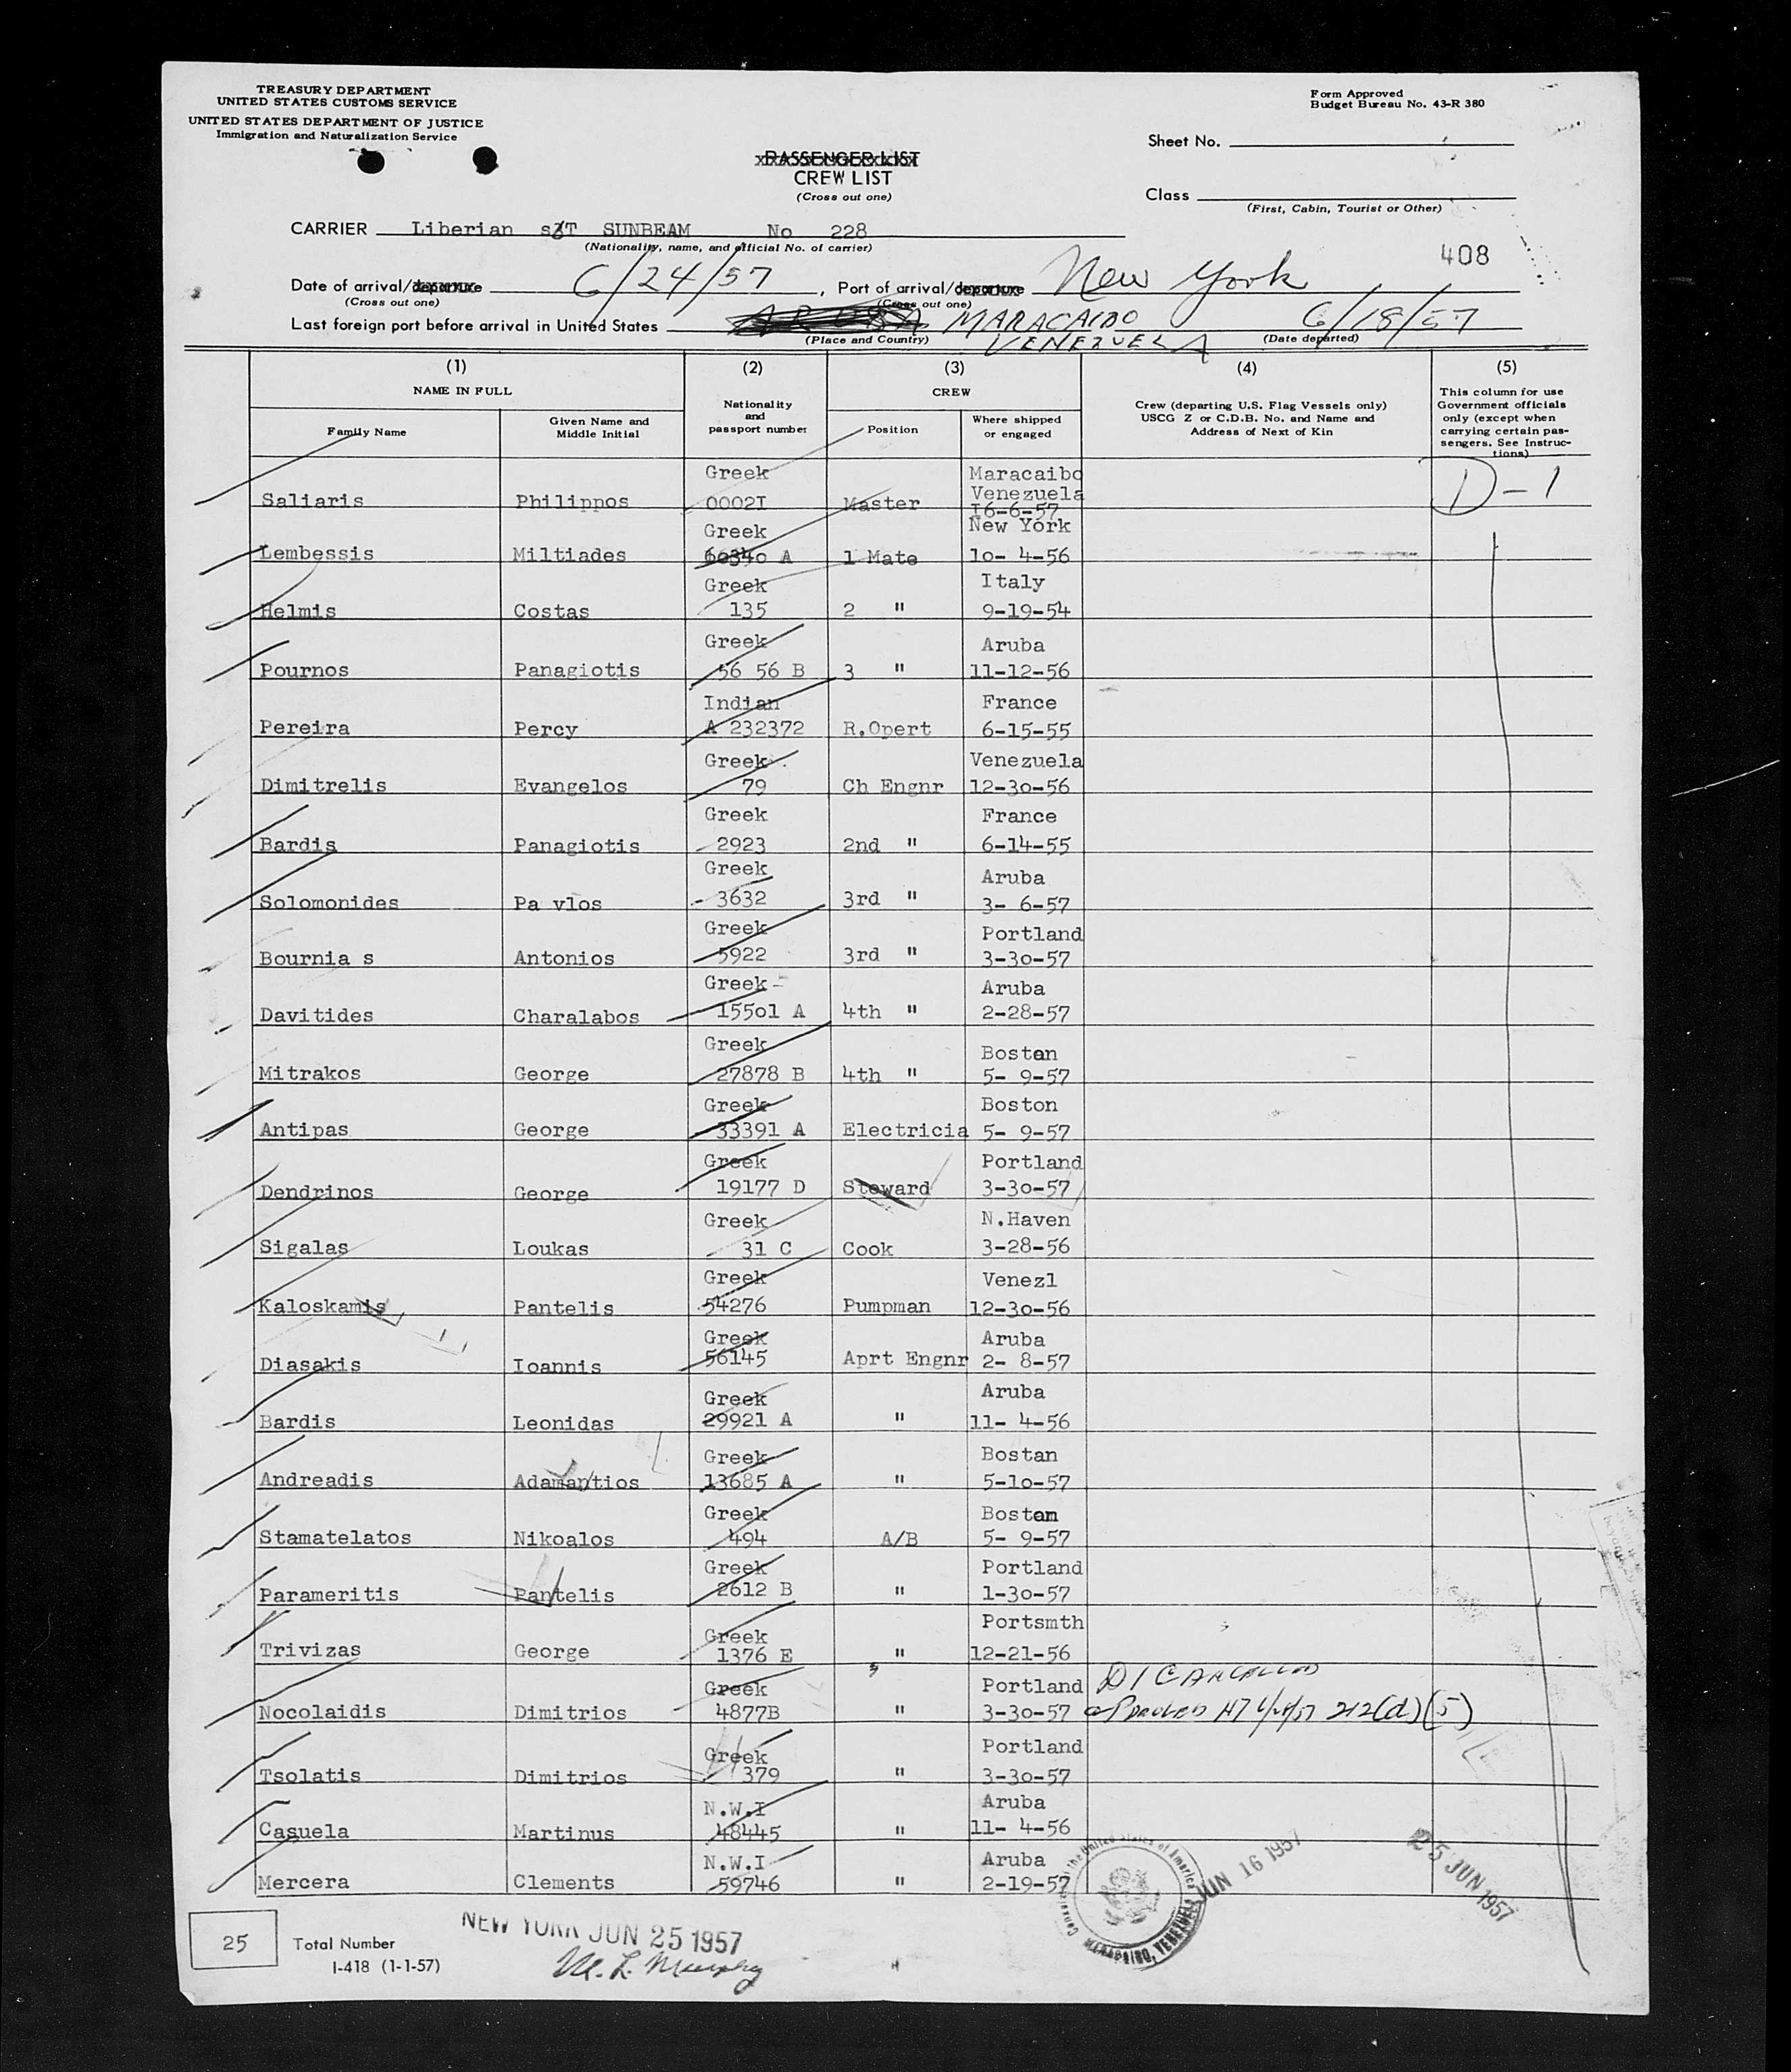 TREASURY DEPARTMENT
UNITED STATES CUSTOMS SERVICE
UNITED STATES DEPARTMENT OF JUSTICE
Immigration and Naturalization Service
Form Approved
Budget Bureau No. 43-R 380
Sheet No.
PASSENGER LIST
CREW LIST
(Cross out one)
Class
(First, Cabin, Tourist or Other)
CARRIER Liberian s/T SUNBEAM No 228
(Nationality, name, and official No. of carrier)
408
Date of arrival/departure 6/24/57, Port of arrival/departure New York
(Cross out one) (Cross out one)
Last foreign port before arrival in United States ARUBA MARACAIBO 6/18/57
(Place and Country) VENEZUELA (Date departed)
(1) (2) (3) (4) (5)
NAME IN FULL
Family Name
Given Name and
Middle Initial
Nationality
and
passport number
CREW
Position
Where shipped
or engaged
Crew (departing U.S. Flag Vessels only)
USCG Z or C.D.B. No. and Name and
Address of Next of Kin
This column for use
Government officials
only (except when
carrying certain pas-
sengers. See Instruc-
tions)
Greek Maracaibo
Venezuela
Saliaris Philippos 0002I Master I6-6-57 D-1
Greek New York
Lembessis Miltiades 60340 A 1 Mate 10- 4-56
Greek Italy
Helmis Costas 135 2 " 9-19-54
Greek Aruba
Pournos Panagiotis 56 56 B 3 " 11-12-56
Indian France
Pereira Percy A 232372 R.Opert 6-15-55
Greek Venezuela
Dimitrelis Evangelos 79 Ch Engnr 12-30-56
Greek France
Bardis Panagiotis 2923 2nd " 6-14-55
Greek Aruba
Solomonides Pa vlos 3632 3rd " 3- 6-57
Greek Portland
Bournia s Antonios 5922 3rd " 3-30-57
Greek Aruba
Davitides Charalabos 15501 A 4th " 2-28-57
Greek Bostan
Mitrakos George 27878 B 4th " 5- 9-57
Greek Boston
Antipas George 33391 A Electricia 5- 9-57
Greek Portland
Dendrinos George 19177 D Steward 3-30-57
Greek N.Haven
Sigalas Loukas 31 C Cook 3-28-56
Greek Venezl
Kaloskamis Pantelis 54276 Pumpman 12-30-56
Greek Aruba
Diasakis Ioannis 56145 Aprt Engnr 2- 8-57
Greek Aruba
Bardis Leonidas 29921 A " 11- 4-56
Greek Bostan
Andreadis Adamantios 13685 A " 5-10-57
Greek Bostan
Stamatelatos Nikoalos 494 A/B 5- 9-57
Greek Portland
Parameritis Pantelis 2612 B " 1-30-57
Greek Portsmth
Trivizas George 1376 E " 12-21-56
Greek Portland D1 CANCELLED
Nocolaidis Dimitrios 4877B " 3-30-57 212(d)(5)
Greek Portland
Tsolatis Dimitrios 379 " 3-30-57
N.W.I Aruba
Casuela Martinus 48445 " 11- 4-56
N.W.I Aruba
Mercera Clements 59746 " 2-19-57
JUN 16 1957
25 JUN 1957
of the United States of America
MARACAIBO, VENEZUELA
25
Total Number
I-418 (1-1-57)
NEW YORK JUN 25 1957
M. L. Murphy